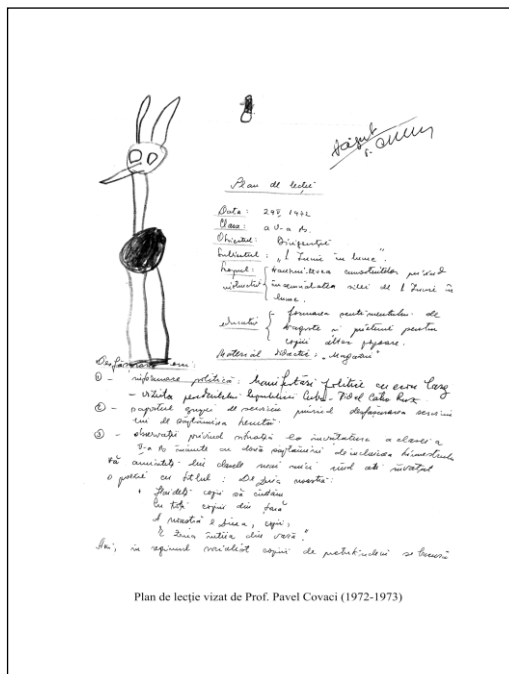 Plan de lecție
Data: 29 V 1972
Clasa: a V-a A.
Obiectul: Dirigenție
Subiectul: „1 Iunie în lume”.
Scopul:
instructiv
cunoștințelor privind
însemnătatea zilei de 1 Iunie în
lume.
educativ
formarea sentimentului de
dragoste și prietenie pentru
copiii altor popoare.
Material didactic: „Magazin”
1 - informare politică: Manifestări politice cu
- vizita președintelui Cuba - Fidel Castro Ruz
2 - raportul grupei de serviciu privind desfășurarea
3 - observații privind situația la învățătură a clasei a
V-a A înainte cu două săptămîni de încheierea trimestrului
Să amintiți din clasele mai mici cînd ați învățat
o poezie cu titlul: De ziua noastră:
Haideți copii să cîntăm
Cu toți copiii din țară
A noastră e ziua, copii,
E ziua întîia din vară."
în regimul socialist copiii de pretutindeni se bucură
Plan de lecție vizat de Prof. Pavel Covaci (1972-1973)